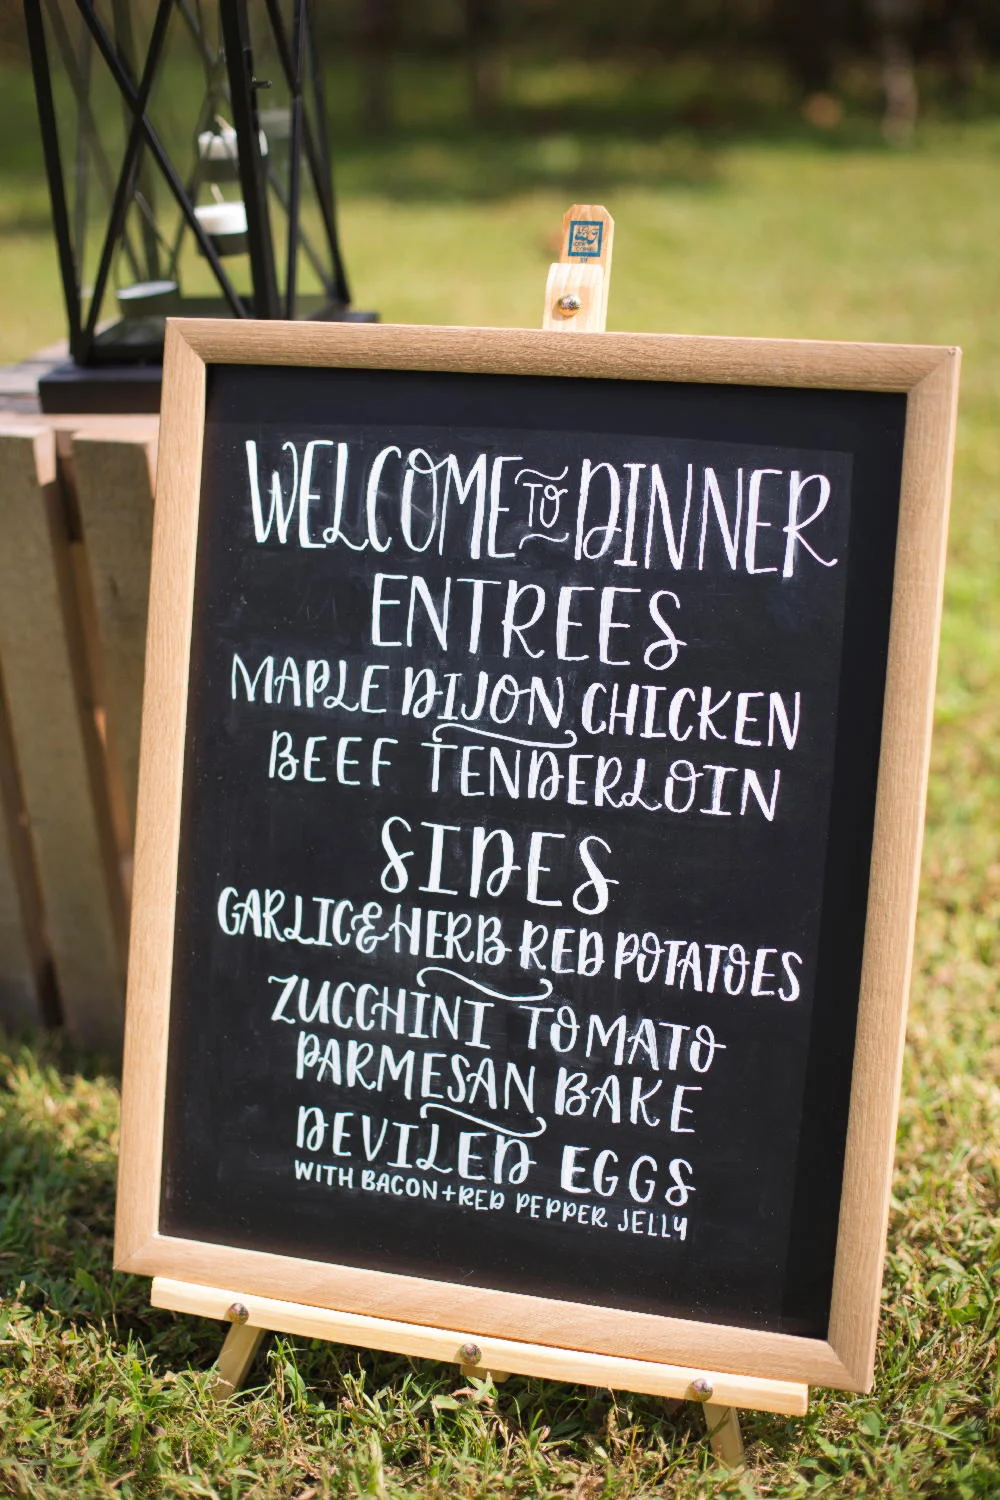 WELCOME TO DINNER
ENTREES
MAPLE DIJON CHICKEN
BEEF TENDERLOIN
SIDES
GARLIC & HERB RED POTATOES
ZUCCHINI TOMATO
PARMESAN BAKE
DEVILED EGGS
WITH BACON + RED PEPPER JELLY